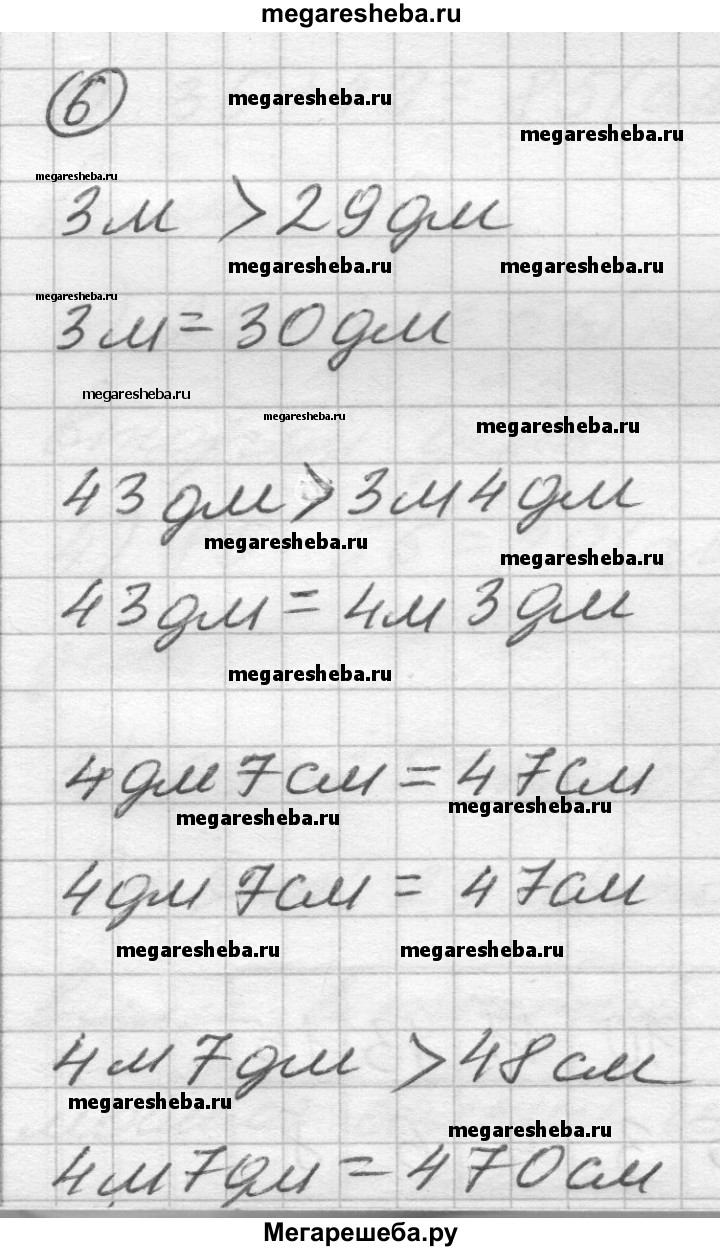 megaresheba.ru
6
megaresheba.ru
megaresheba.ru
megaresheba.ru
3м > 29дм
megaresheba.ru megaresheba.ru
megaresheba.ru
3м = 30дм
megaresheba.ru
megaresheba.ru
megaresheba.ru
43дм > 3м 4дм
megaresheba.ru
megaresheba.ru
43дм = 4м 3дм
megaresheba.ru
4дм 7см = 47см
megaresheba.ru
megaresheba.ru
4дм 7см = 47см
megaresheba.ru megaresheba.ru
4м 7дм > 48см
megaresheba.ru
megaresheba.ru
4м 7дм = 470см
Мегарешеба.ру